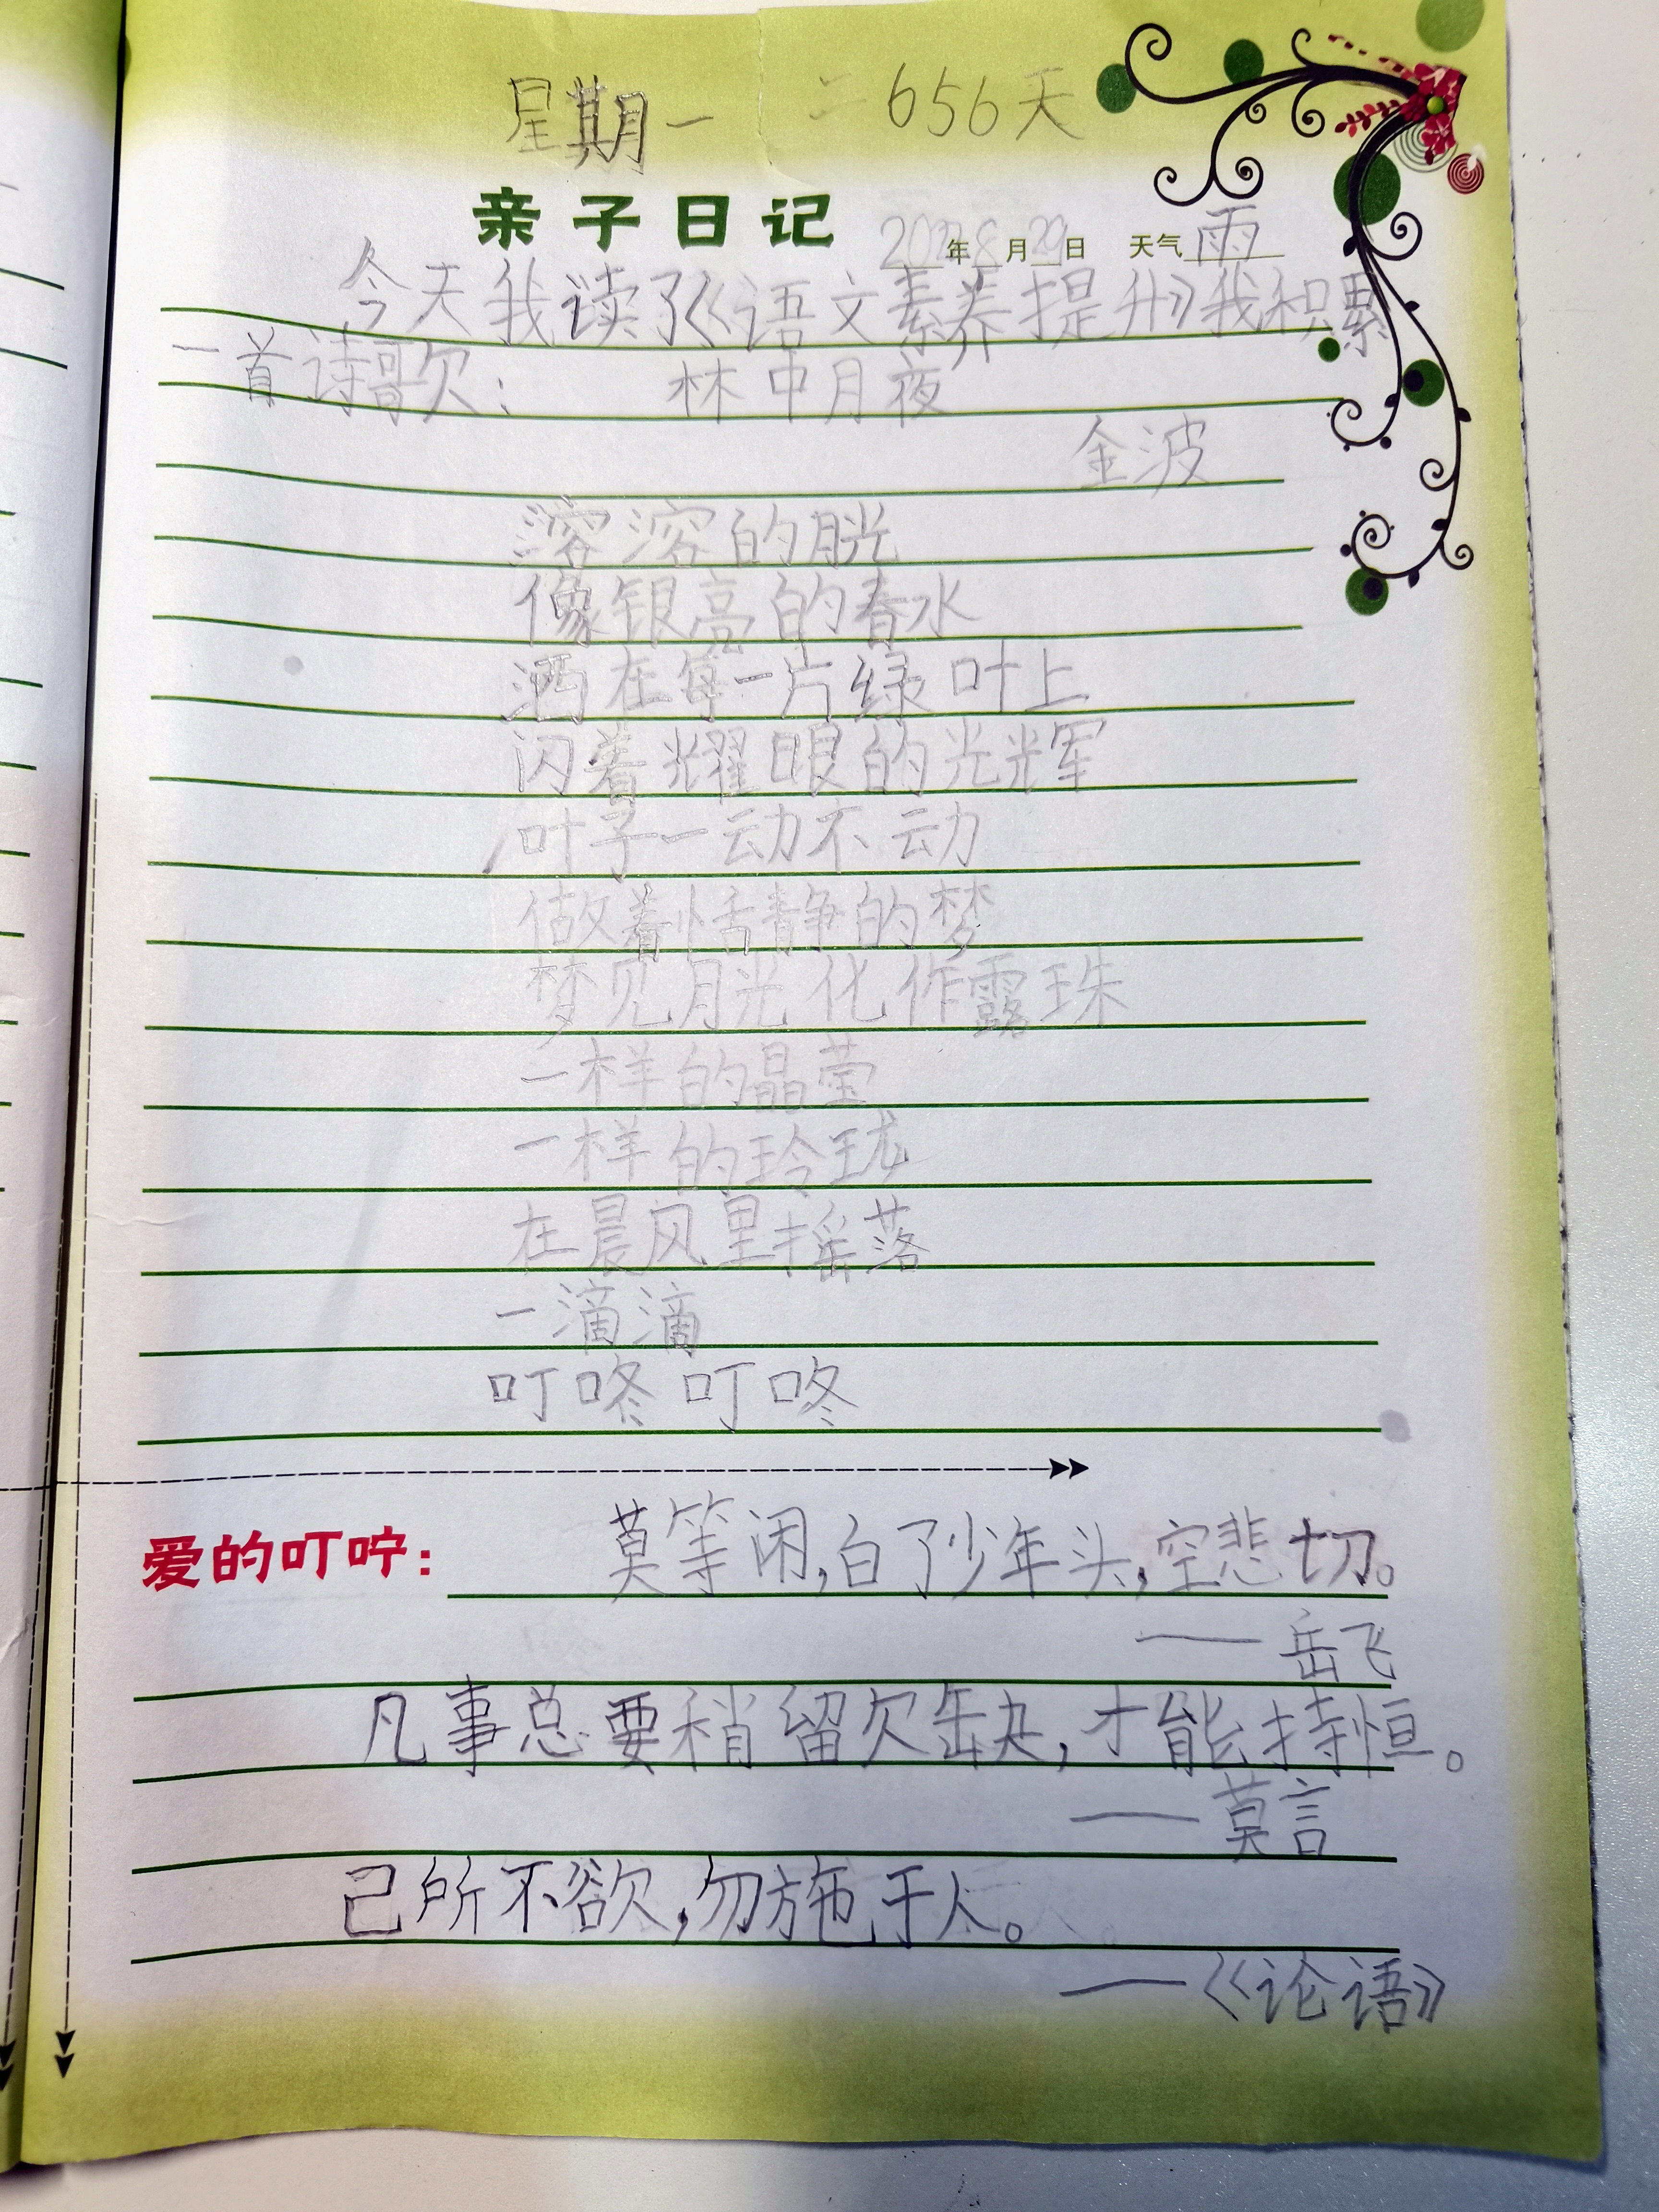 星期一 二656天
亲子日记 2022年8月29日 天气雨
今天我读了《语文素养提升》我积累
一首诗歌欠: 林中月夜
金波
溶溶的月光
像银亮的春水
洒在每一片绿叶上
闪着耀眼的光辉
叶子一动不动
做着恬静的梦
梦见月光化作露珠
一样的晶莹
一样的玲珑
在晨风里摇落
一滴滴
叮咚叮咚
爱的叮咛: 莫等闲,白了少年头,空悲切。
——岳飞
凡事总要稍留欠缺,才能持恒。
——莫言
己所不欲,勿施于人。
——《论语》